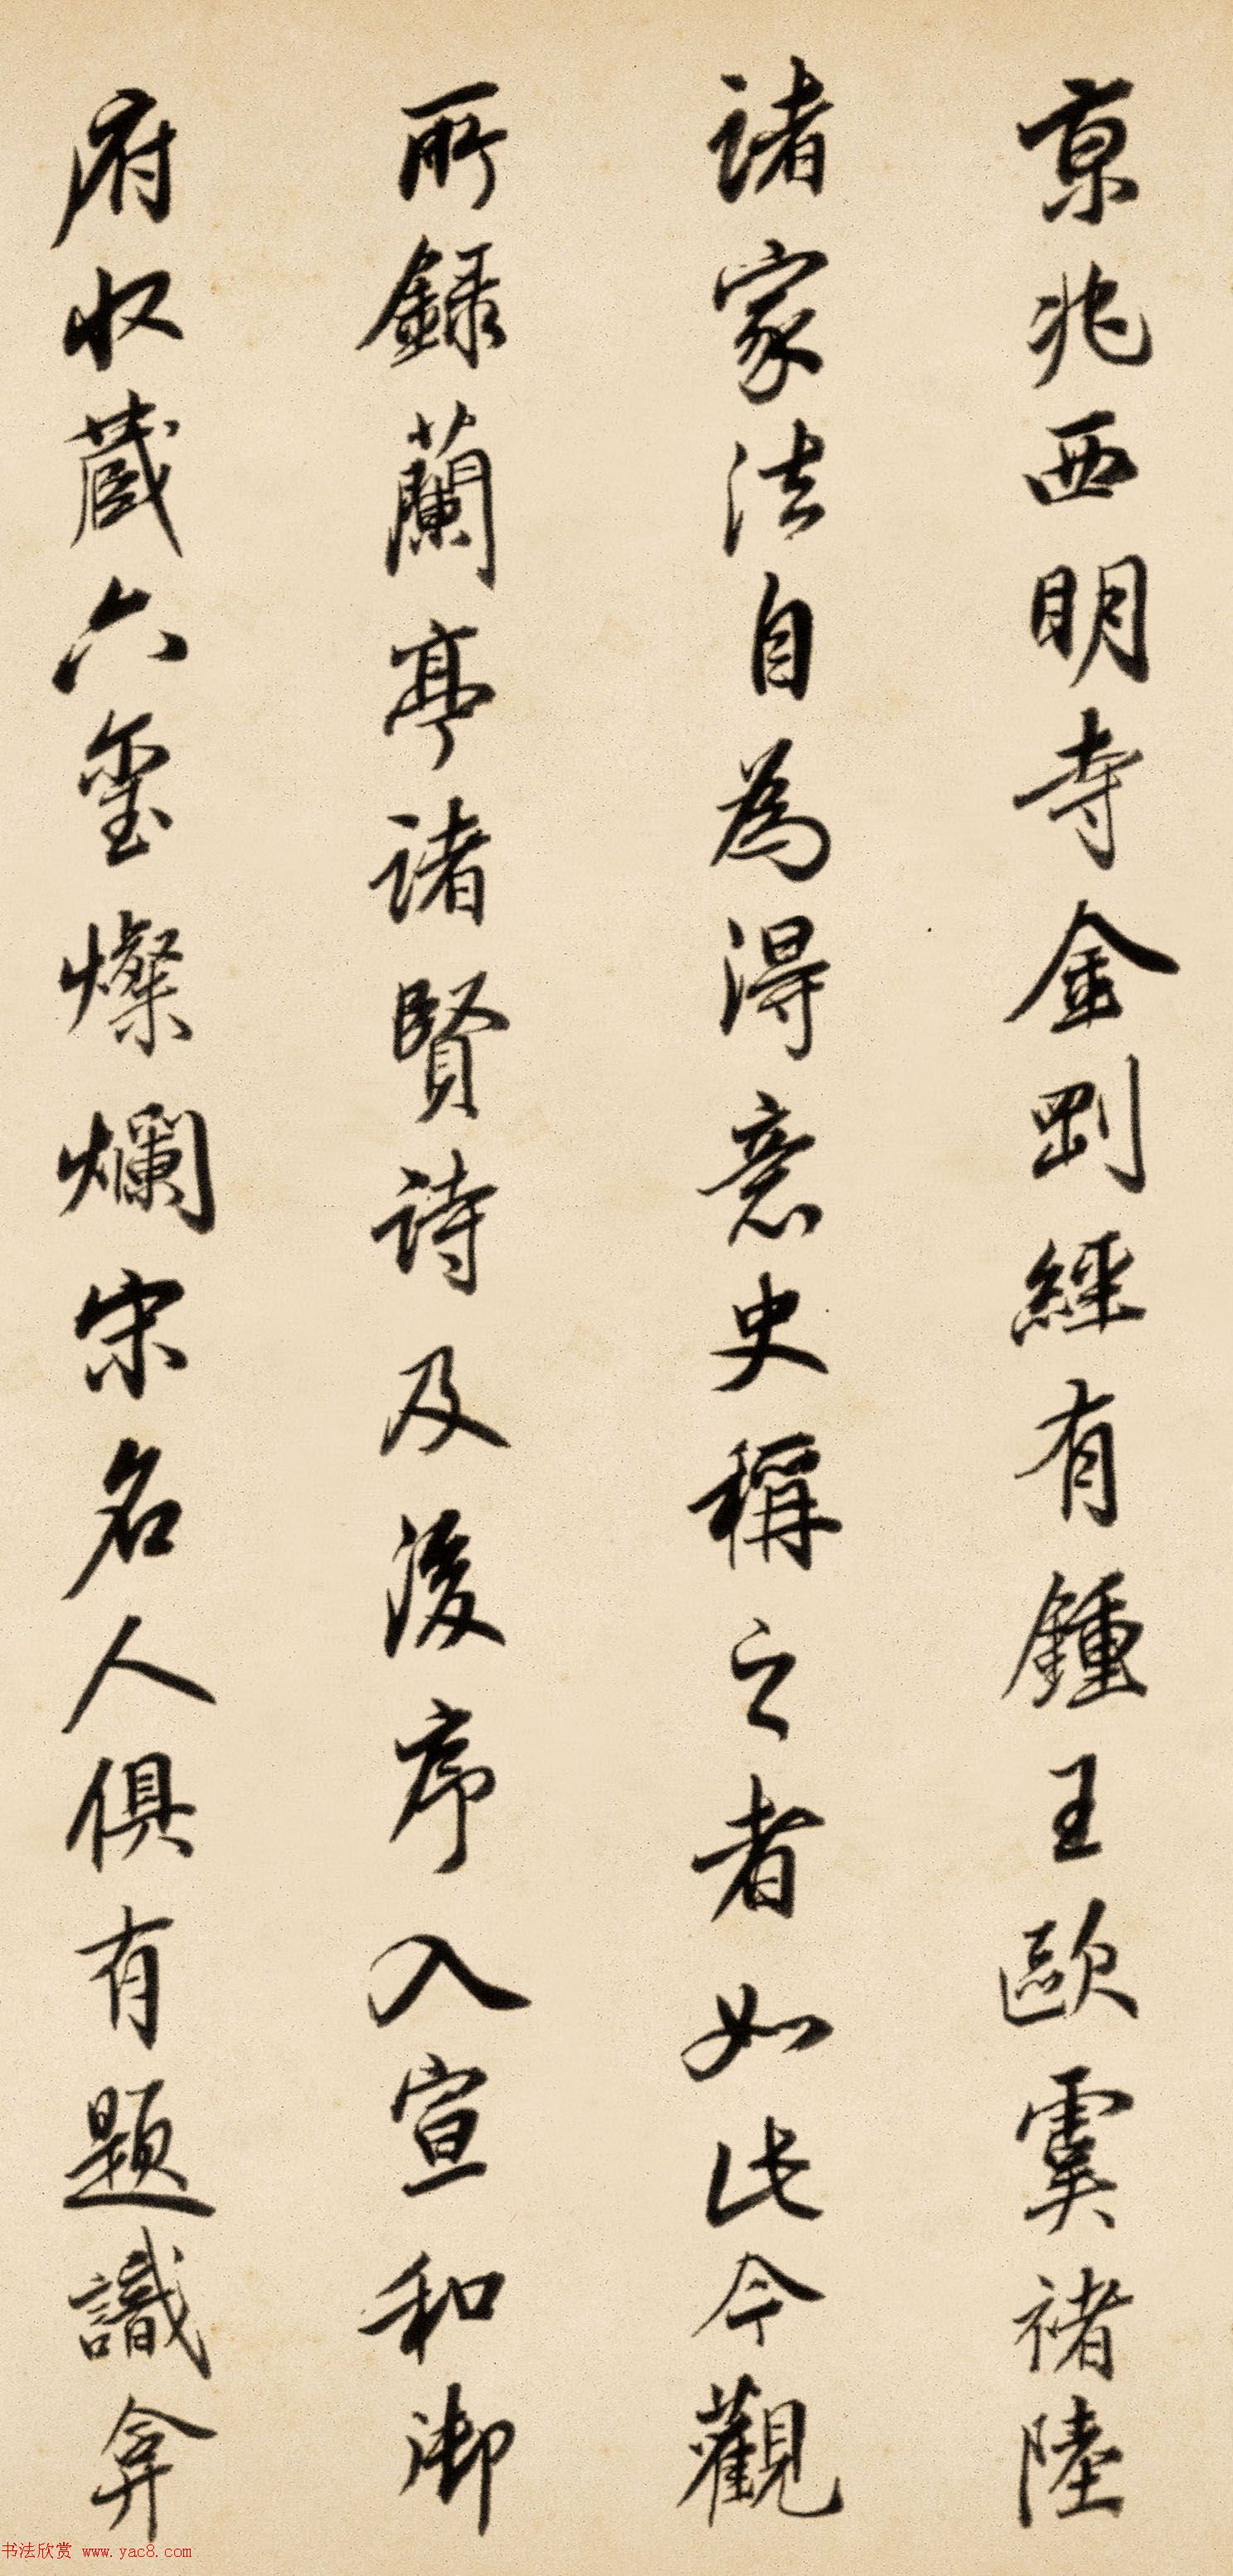 京兆西明寺金剛經有鍾王歐虞褚陸
諸家法自為得意史稱之者如此今觀
所録蘭亭諸賢詩及後序入宣和御
府収蔵六璽燦爛宋名人俱有題識弇
书法欣赏 www.yac8.com